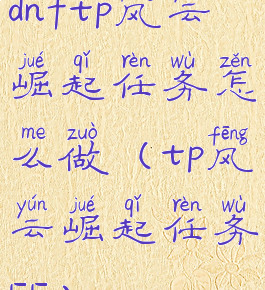 dnf+tp风云
jué qǐ rèn wù zěn
崛起任务怎
me zuò fēng
么做(tp风
yún jué qǐ rèn wù
云崛起任务